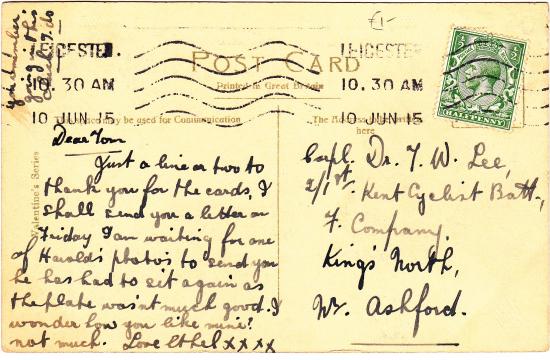 you remember
going in this
don't I. do
£1-
LEICESTER.
10.30 AM
10 JUN 15
POST CARD
Printed in Great Britain
LEICESTER
10.30 AM
10 JUN 15
HALFPENNY
This space may be used for Communication
The Address only
here
Valentine's Series
Dear Tom
Just a line or two to
thank you for the cards, I
shall send you a letter on
Friday I am waiting for one
of Harold's photo's to send you
he has had to sit again as
the plate wasn't much good. I
wonder how you like mine?
not much. Love Ethel x x x x
Corpl. Dr. T. W. Lee,
2/1st. Kent Cyclist Batt.,
F. Company.
King's North,
Nr. Ashford.